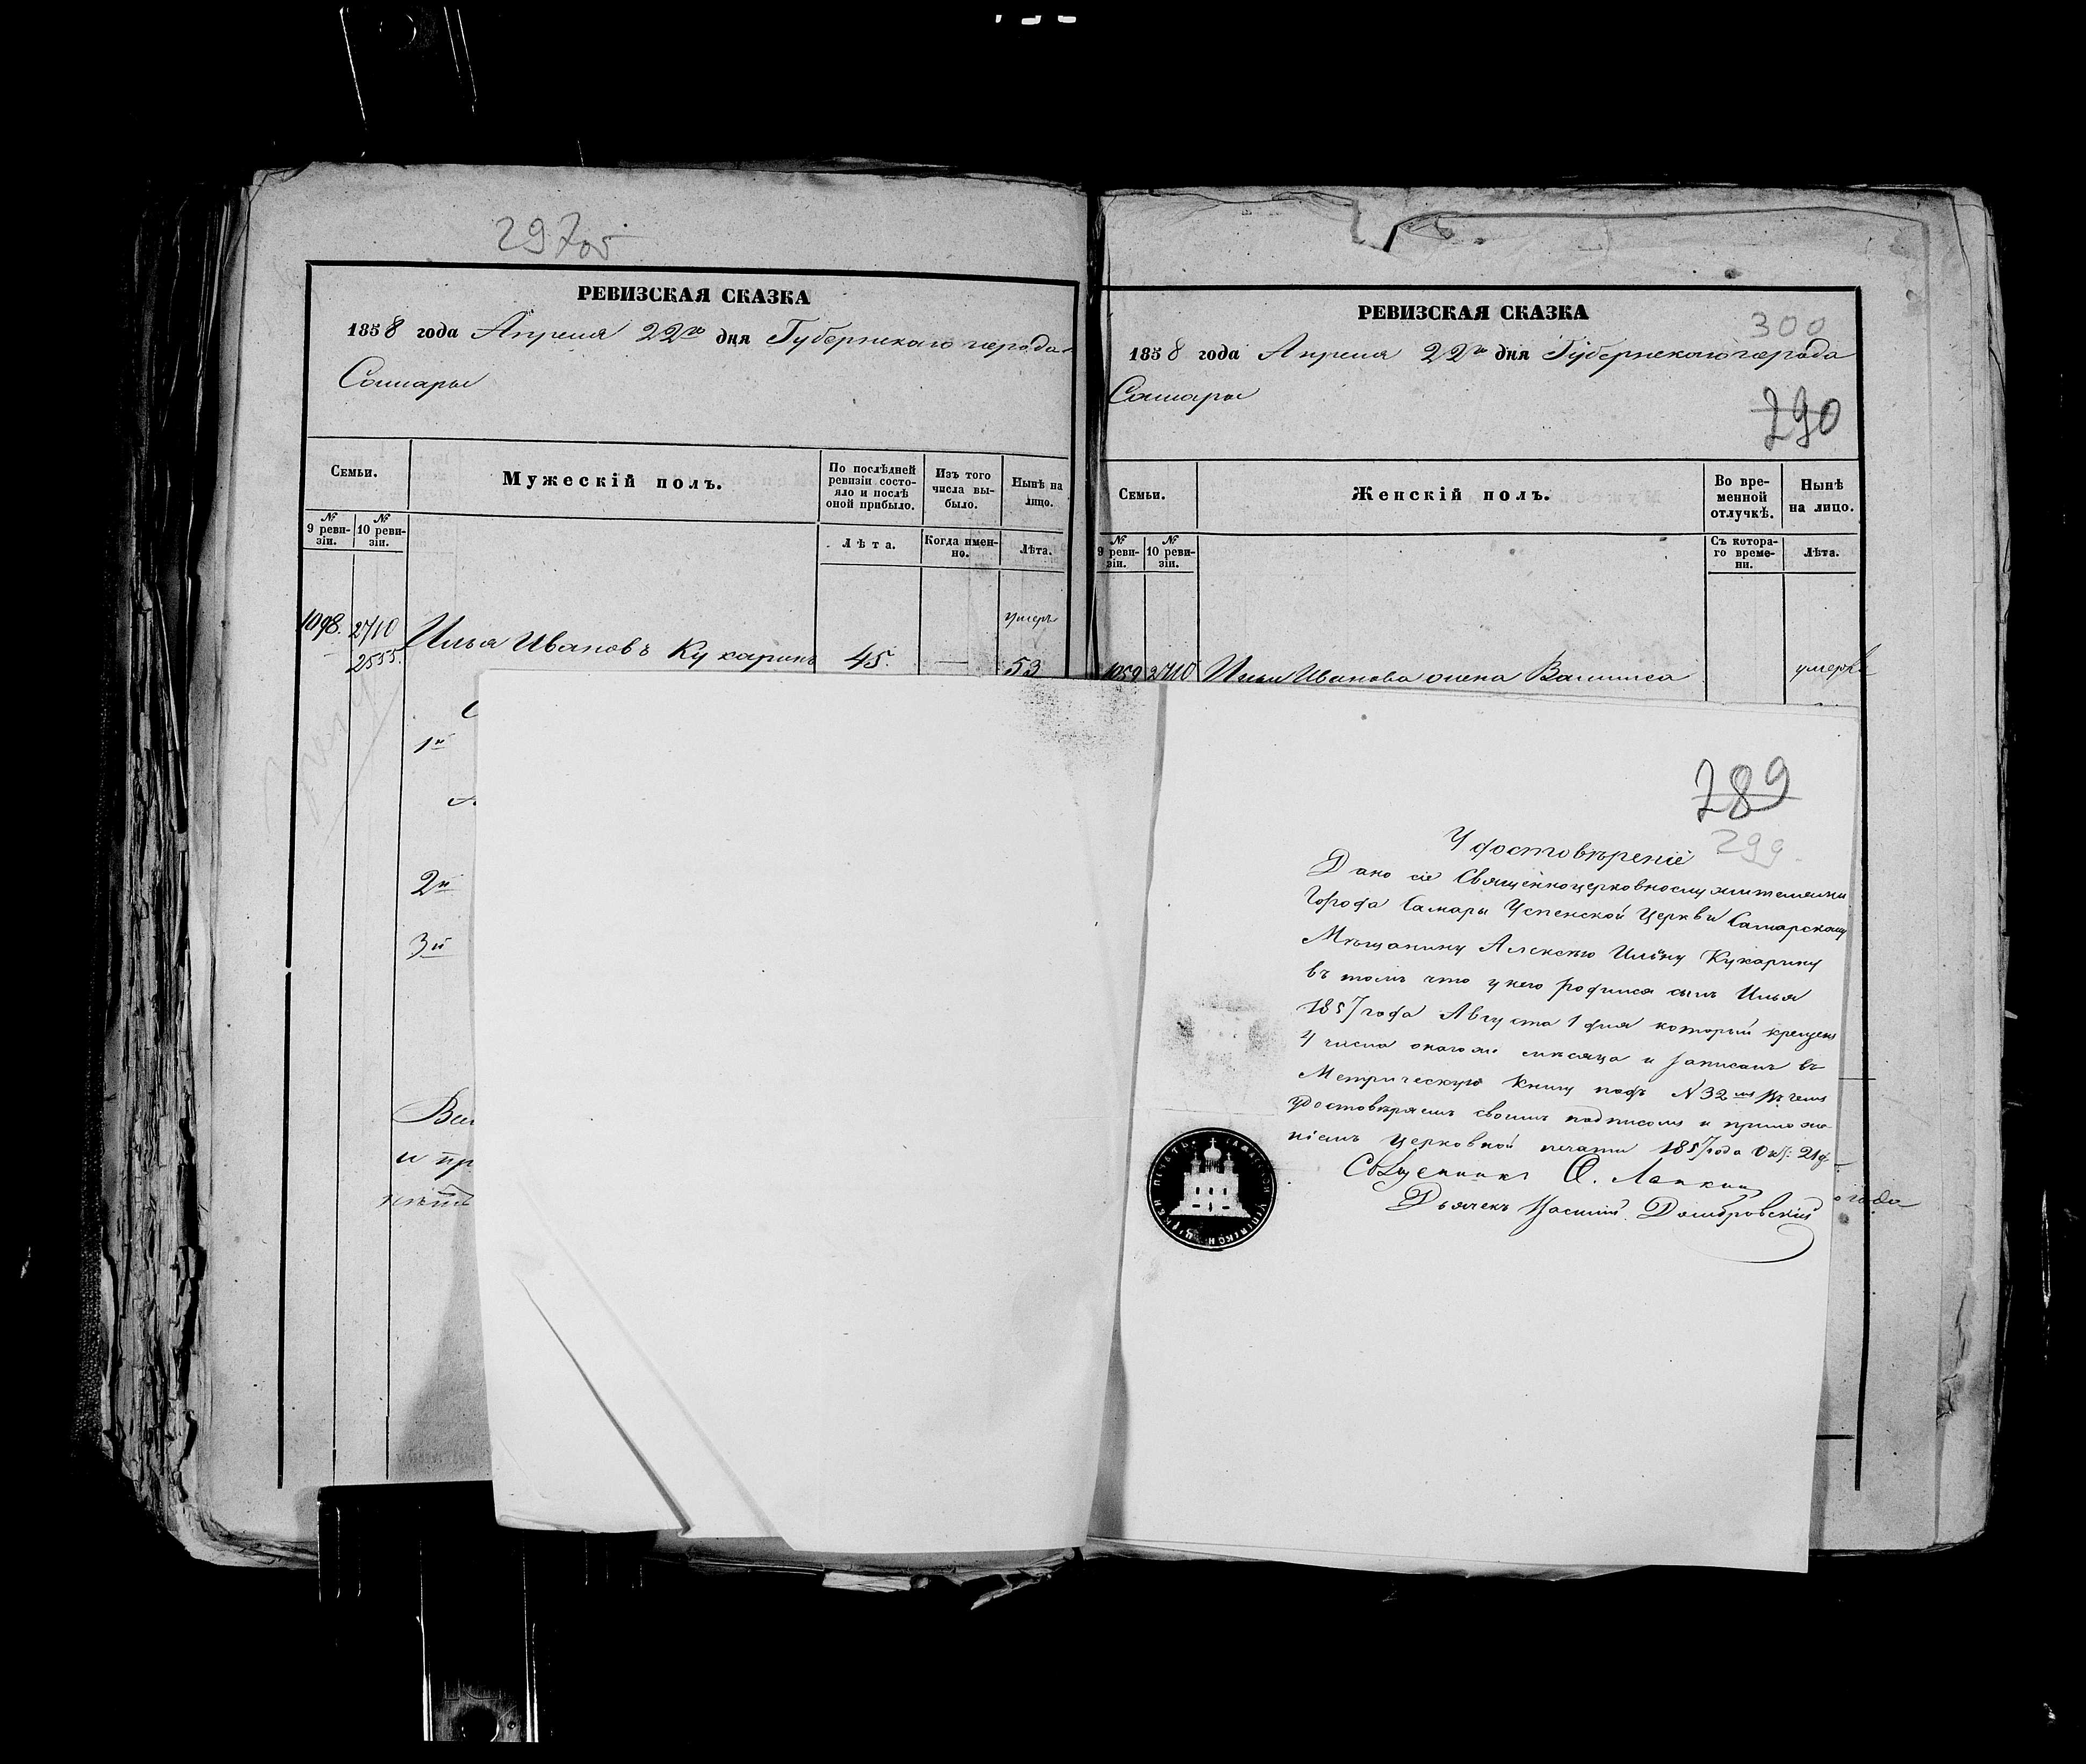 297об
РЕВИЗСКАЯ СКАЗКА
1858 года Апреля 22го дня Губернскаго города
Самары
Семьи.
Мужескій полъ.
По послѣдней ревизіи состояло и послѣ оной прибыло.
Изъ того числа выбыло.
Нынѣ на лицо.
№ 9 ревизіи.
№ 10 ревизіи.
Лѣта.
Когда именно.
Лѣта.
умеръ
1098. 2710 Илья Ивановъ Кукаринъ 45. — 53
2555.
1й
2й
3й
и пр
РЕВИЗСКАЯ СКАЗКА
300
1858 года Апреля 22го дня Губернскаго города
Самары
290
Семьи.
Женскій полъ.
Во временной отлучкѣ.
Нынѣ на лицо.
№ 9 ревизіи.
№ 10 ревизіи.
Съ котораго времени.
Лѣта.
2710 Ильи Иванова жена Васил
289
299
Удостовѣреніе
Дано сіе Священноцерковнослужителями
Города Самары Успенской Церкви Самарскому
Мѣщанину Алексѣю Ильину Кукарину
въ томъ что у него родился сынъ Илья
1857 года Августа 1 дня который крещенъ
4 числа онагоже мѣсяца и записанъ въ
Метрическую Книгу подъ №32мъ Въ чемъ
удостовѣряемъ своимъ подписомъ и приложе-
ніемъ церковной печати 1857 года Окт: 21 д.
Священникъ Ѳ. Лапкин
Дьячекъ Василий Домбровскій
года